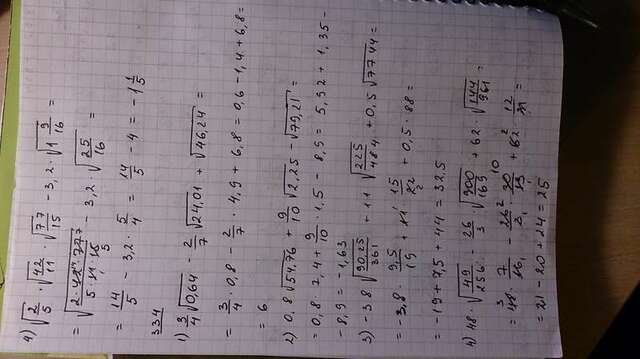 4) √(2/5) · √(42/11) · √(77/15) - 3,2 · √(1 9/16) =
= √(2·42·77/(5·11·15)) - 3,2 · √(25/16) =
= 14/5 - 3,2 · 5/4 = 14/5 - 4 = -1 1/5
334
1) 3/4 √0,64 - 2/7 √24,01 + √46,24 =
= 3/4 · 0,8 - 2/7 · 4,9 + 6,8 = 0,6 - 1,4 + 6,8 =
= 6
2) 0,8 √54,76 + 9/10 √2,25 - √79,21 =
= 0,8 · 7,4 + 9/10 · 1,5 - 8,9 = 5,92 + 1,35 -
- 8,9 = -1,63
3) -3,8 √(90,25/361) + 11 √(225/484) + 0,5 √7744 =
= -3,8 · 9,5/19 + 11 · 15/22 + 0,5 · 88 =
= -19 + 7,5 + 44 = 32,5
4) 48 · √(49/256) - 26/3 · √(900/169) + 62 · √(144/961) =
= 48 · 7/16 - 26/3 · 30/13 + 62 · 12/31 =
= 21 - 20 + 24 = 25